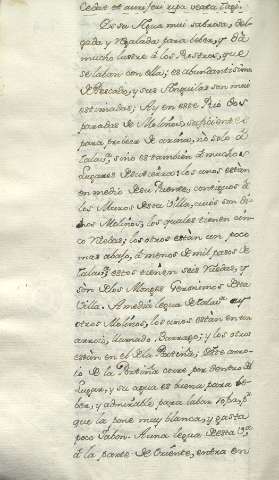 Es su Agua mui sabrosa, del-
gada y regalada para beber, y dá
mucho lustre à los Rostros, que
se laban con ella; es abundantissima
de Pescado, y sus Anguilas son mui
estimadas; Ay en este Rio dos
paradas de Molinos, suficientes
para proveer de arina, no solo à
Talav.ª sino es tambien à muchos
Lugares de su tierra: los unos estàn
en medio de su Puente, contiguos à
los Muros de esta Villa, cuios son di-
chos Molinos, los quales tienen cin-
co Ruedas, los otros estàn un poco
mas abajo, à menos de mil pasos de
Talav.ª; estos tienen seis Ruedas, y
son de los Monges Geronimos de esta
Villa. A media legua de Talav.ª ay
otros Molinos, los unos estàn en un
arroio, llamado Barrago; y los otros
estàn en el de la Portiña; este arro-
io de la Portiña corre por dentro del
Lugar, y su agua es buena para be-
ber, y admirable para labar ropa, p.s
que la pone muy blanca, y gasta
poco Jabon. A una legua de esta V.ª
à la parte de Oriente, entra en